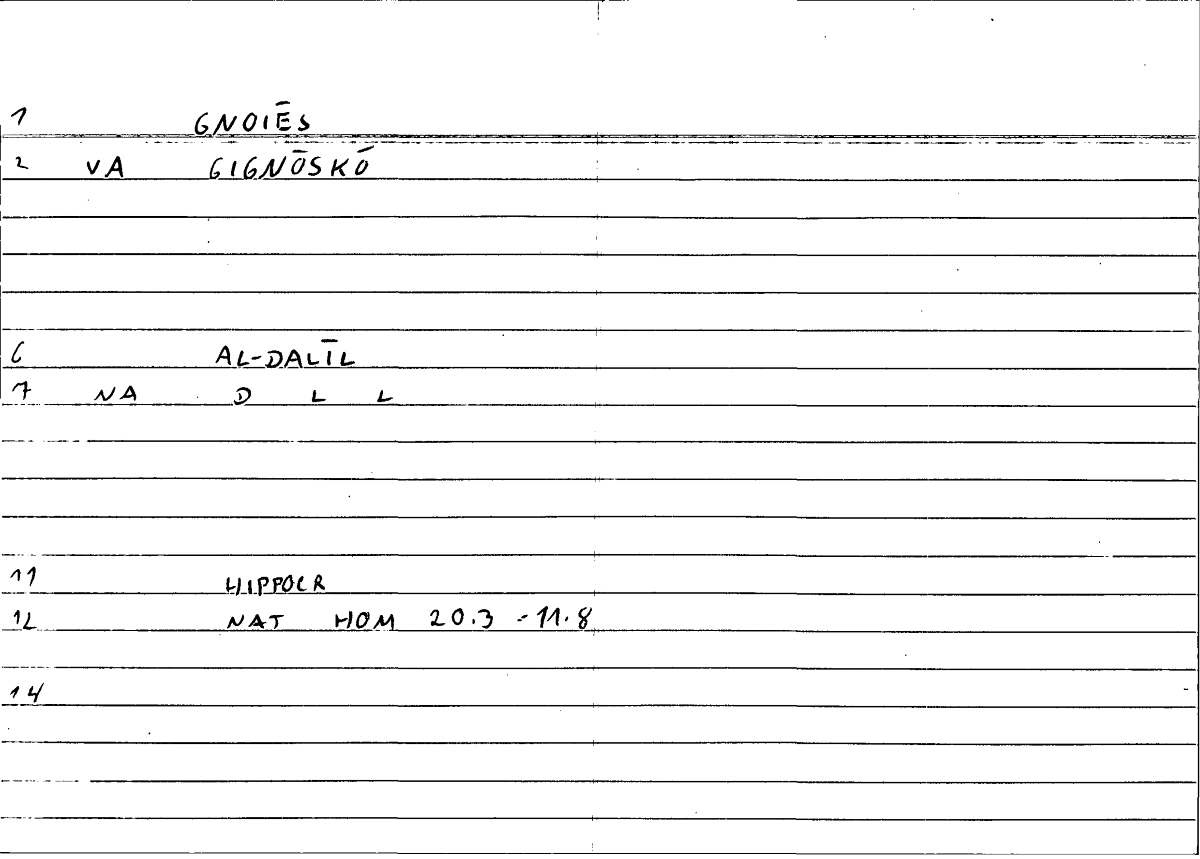 1 GNOIĒS
2 VA GIGNŌSKŌ
6 AL-DALĪL
7 NA D L L
11 HIPPOCR
12 NAT HOM 20.3 -11.8
14